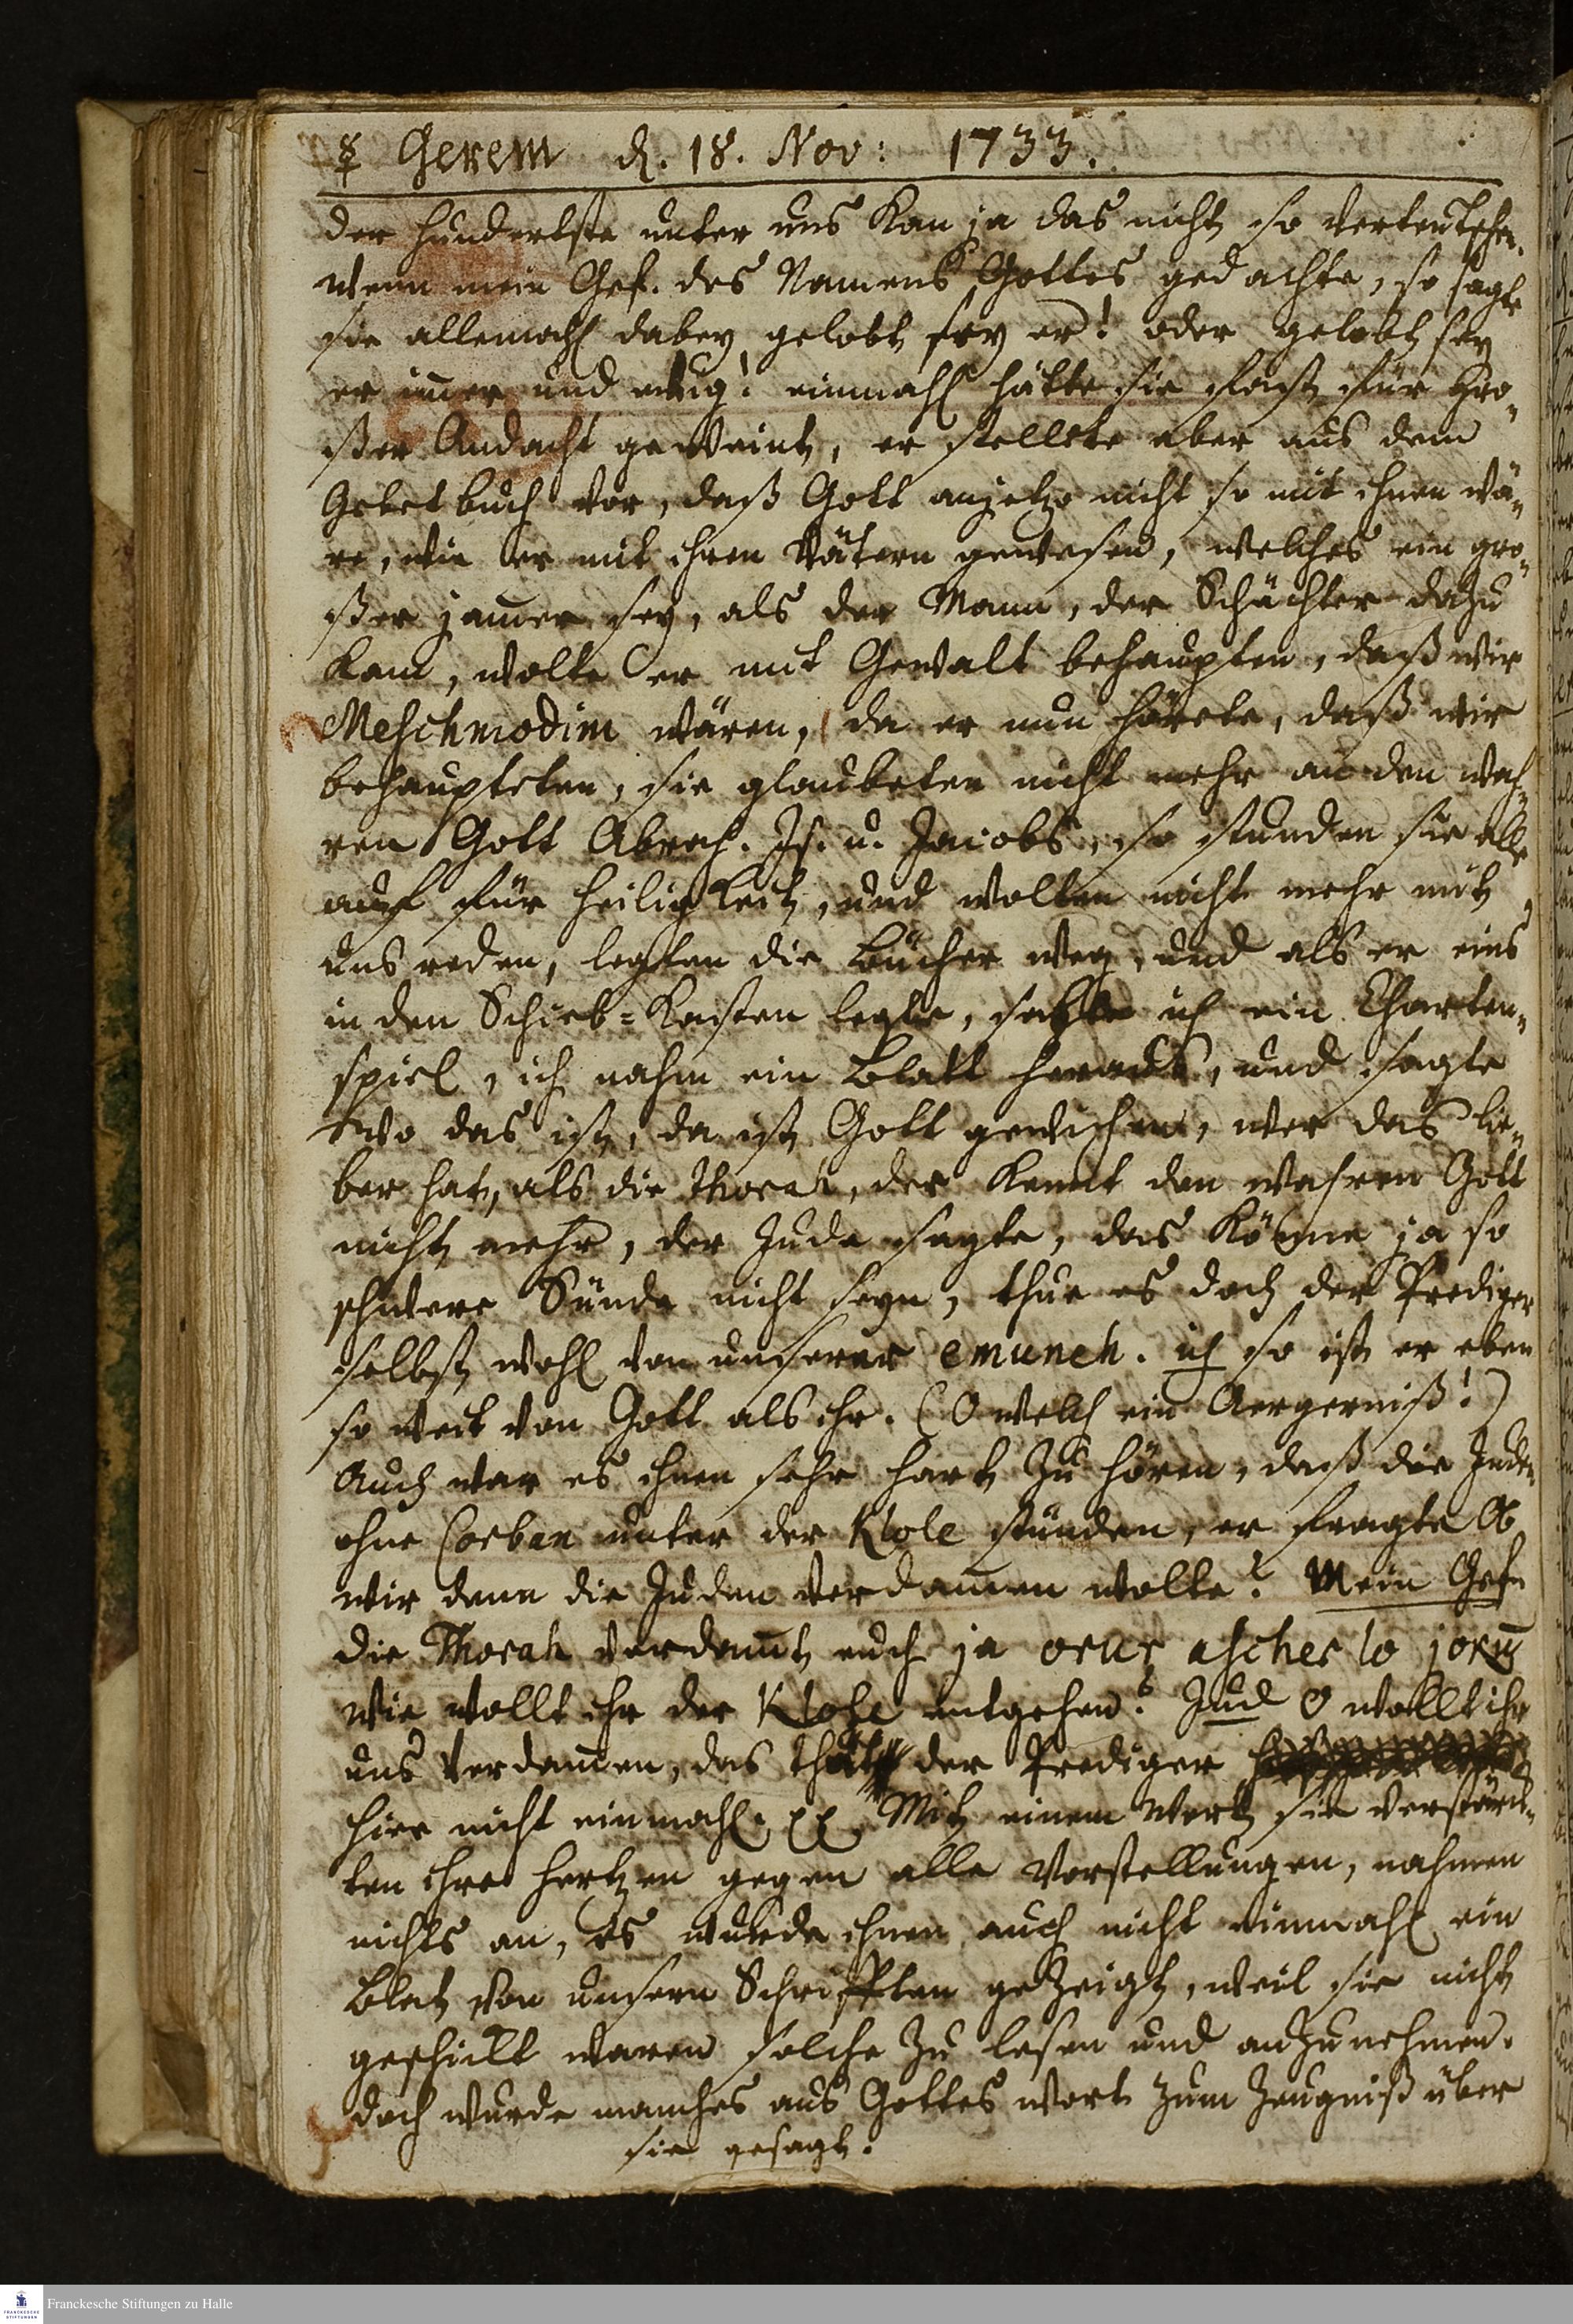 ☿ Gerem d. 18. Nov: 1733.
der hundertste unter uns kan ja das nicht so verteutschen.
wenn mein Gef. des Namens Gottes gedachte, so sagte
sie allemahl dabey gelobt sey er! oder gelobt sey
er im̄er und ewig! einmahl hätte sie fast für gro„
ßer Andacht geweint, er stellete aber aus dem
Gebetbuch vor, daß Gott anjetzo nicht so mit ihnen wä„
re, wie er mit ihren Vätern gewesen, welches ein gro„
ßer jam̄er sey, als der Mann, der Schächter dazu
kam, wolte er mit Gewalt behaupten, daß wir
Meschmodim wären, da er nun hörete, daß wir
behaupteten, sie glaubeten nicht mehr an den wah„
ren Gott Abrah. Is. u. Jacobs, so stunden sie alle
auf für heiligkeit, und wolten nicht mehr mit
uns reden, legten die Bücher weg, und als er eins
in den Schieb=Kasten legte, sahe ich ein Charten„
spiel, ich nahm ein Blatt heraus, und sagte
wo das ist, da ist Gott gewichen, wer das lie„
ber hat, als die Thorah, der kennt den wahren Gott
nicht mehr, der Jude sagte, das könne ja so
schwere Sünde nicht seyn, thue es doch der Prediger
selbst wohl von unserer emuneh. ich so ist er eben
so weit von Gott als ihr. (O welch ein Aergerniß!)
Auch war es ihnen sehr hart zu hören, daß die Juden
ohne Corban unter der Klole stünden, er fragte Ob
wir denn die Juden verdam̄en wolte? Mein Gef.
die Thorah verdam̄t euch ja orur ascher lo jokim
wie wollt ihr der Klohe entgehen? Jud O wollt ihr
uns verdam̄en, das thut der Prediger
hier nicht einmahl. pp Mit einem Wort sie verstärck„
ten ihre hertzen gegen alle Vorstellungen, nahmen
nichts an, es wurde ihnen auch nicht einmahl ein
Blat von unsern Schrifften gezeigt, weil sie nicht
geschickt waren solche zu lesen und anzunehmen.
doch wurde manches aus Gottes wort zum Zeugniß über
sie gesagt.
Franckesche Stiftungen zu Halle